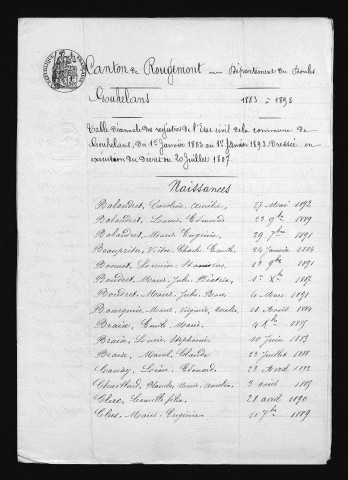 Canton de Rougemont Département du Doubs
Rouhelans 1883 à 1893
Table décennale des registres de l'Etat civil de la commune de
Rouhelans, du 1er Janvier 1883 au 1er Janvier 1893. Dressée en
exécution du Décret du 20 Juillet 1807.
Naissances
Balandret, Caroline 27 Mai 1892
Balandret, Louis Edmond 22 9bre 1889
Balandret, Marie Eugénie 29 7bre 1891
Beaupretre, Victor Charles Emile 24 Janvier 1884
Bonnet, Stanislas 12 9bre 1891
Bouderet, Marie Julie 1er Xbre 1892
Bouderet, Marie Julie 4 Mars 1891
Bourquin, Marie Virginie, 10 Août 1884
Braise, Emile Marie 4 Xbre
Braise, Louise Stéphanie 10 Juin 1883
Braise, Marcel Claude 23 Juillet 1888
Léon, Edouard 23 Avril
2 avril 1885
Clerc, Camille 28 avril 1890
Clerc, Marie Eugénie 11 7bre 1889